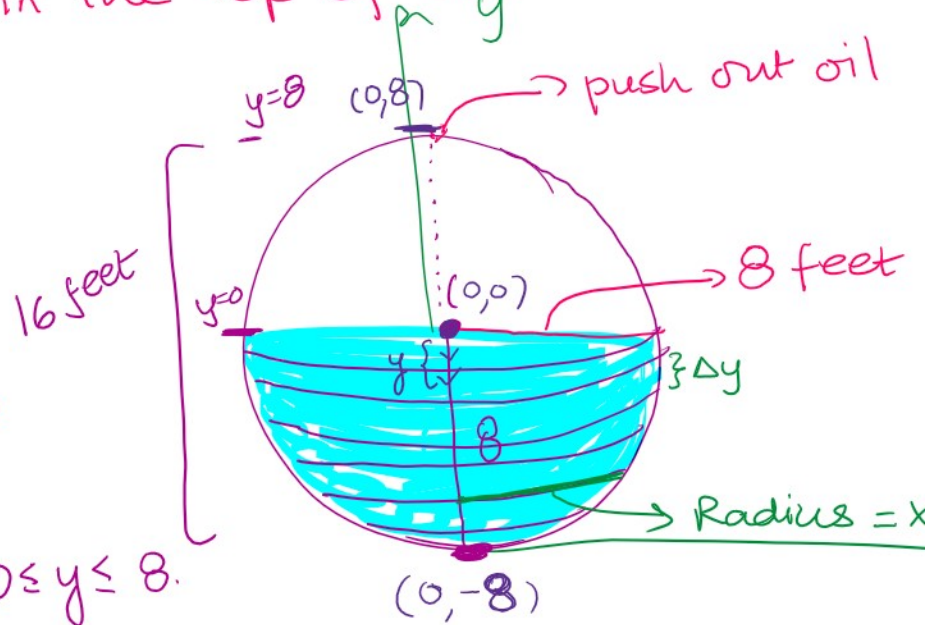 in the top of
y
y=8
(0,8)
push out oil
16 feet
y=0
(0,0)
8 feet
y {
} Δy
8
Radius = x
0≤ y ≤ 8.
(0,-8)